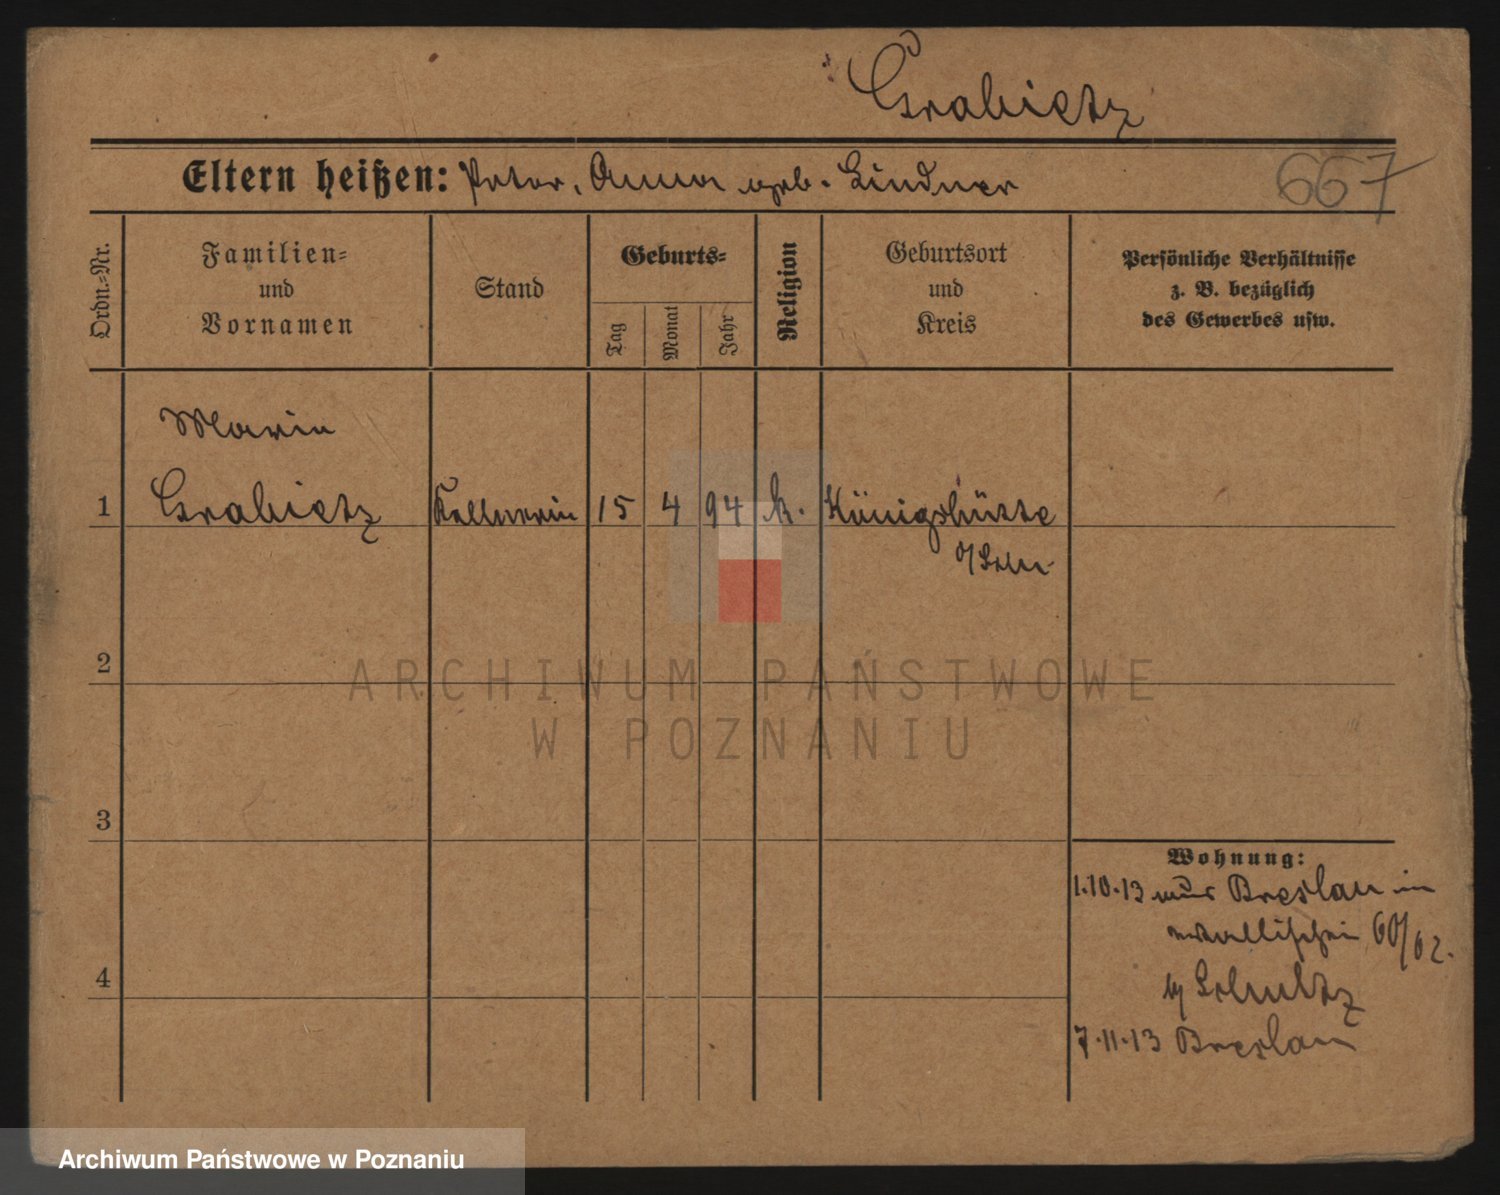 Grabietz
Eltern heißen: Peter, Anna geb. Lindner
667
Ordn.=Nr.
Familien=
und
Vornamen
Stand
Geburts=
Tag
Monat
Jahr
Religion
Geburtsort
und
Kreis
Persönliche Verhältnisse
z. B. bezüglich
des Gewerbes usw.
Marie
1 Grabietz Kellnerin 15 4 94 k. Königshütte
o/Schl.
2
ARCHIWUM PAŃSTWOWE
W POZNANIU
3
Wohnung:
1.10.13 aus Breslau in
Wallischei 60/62.
b/ Schultz
4
7.11.13 Breslau
Archiwum Państwowe w Poznaniu